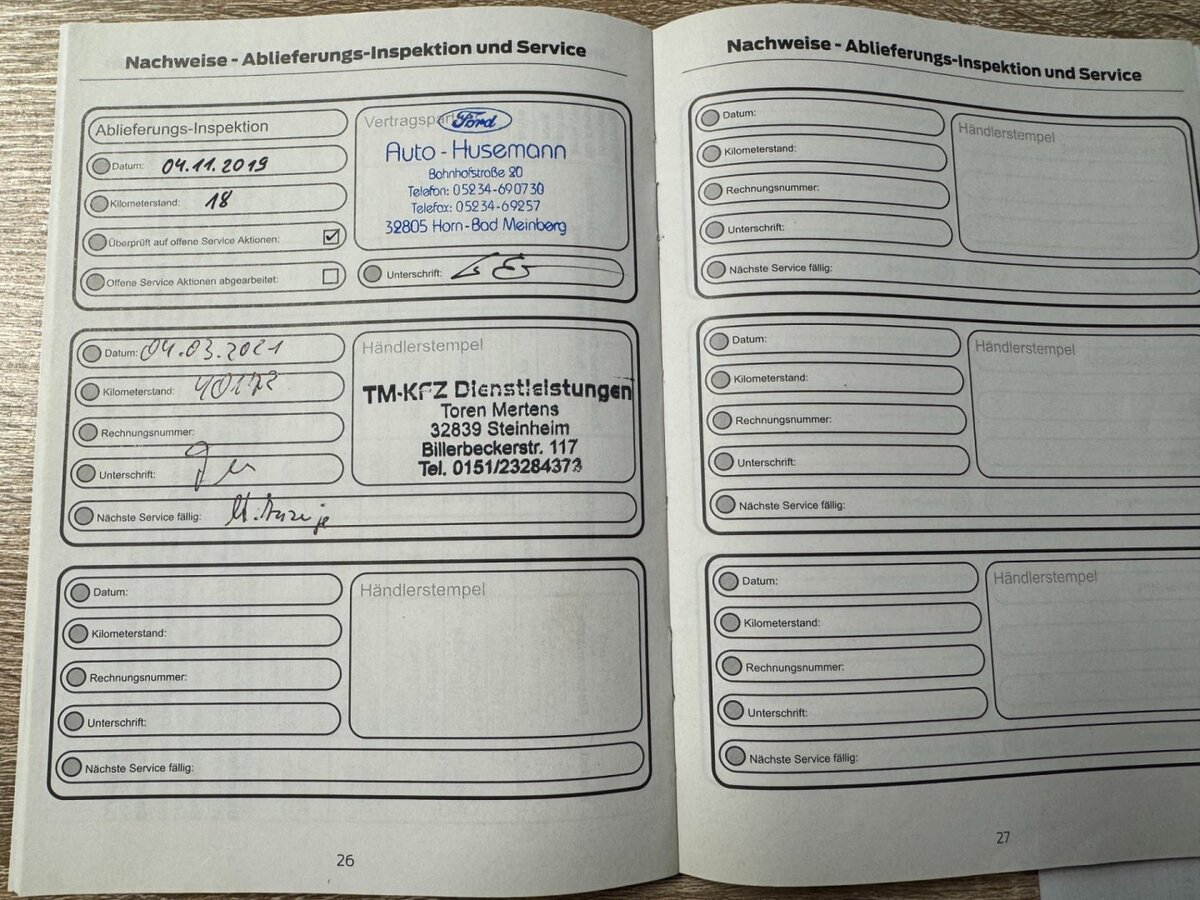 Nachweise - Ablieferungs-Inspektion und Service
Ablieferungs-Inspektion
Datum: 04.11.2019
Kilometerstand: 18
Überprüft auf offene Service Aktionen:
Offene Service Aktionen abgearbeitet:
Ford
Auto - Husemann
Bahnhofstraße 20
Telefon: 05234-690730
Telefax: 05234-69257
32805 Horn-Bad Meinberg
Unterschrift:
Datum: 04.03.2021
Kilometerstand:
Rechnungsnummer:
Unterschrift:
Nächste Service fällig:
Händlerstempel
TM-KFZ Dienstleistungen
Toren Mertens
32839 Steinheim
Billerbeckerstr. 117
Tel. 0151/23284373
Datum:
Kilometerstand:
Rechnungsnummer:
Unterschrift:
Nächste Service fällig:
Händlerstempel
26
Nachweise - Ablieferungs-Inspektion und Service
Datum:
Kilometerstand:
Rechnungsnummer:
Unterschrift:
Nächste Service fällig:
Händlerstempel
Datum:
Kilometerstand:
Rechnungsnummer:
Unterschrift:
Nächste Service fällig:
Händlerstempel
Datum:
Kilometerstand:
Rechnungsnummer:
Unterschrift:
Nächste Service fällig:
Händlerstempel
27